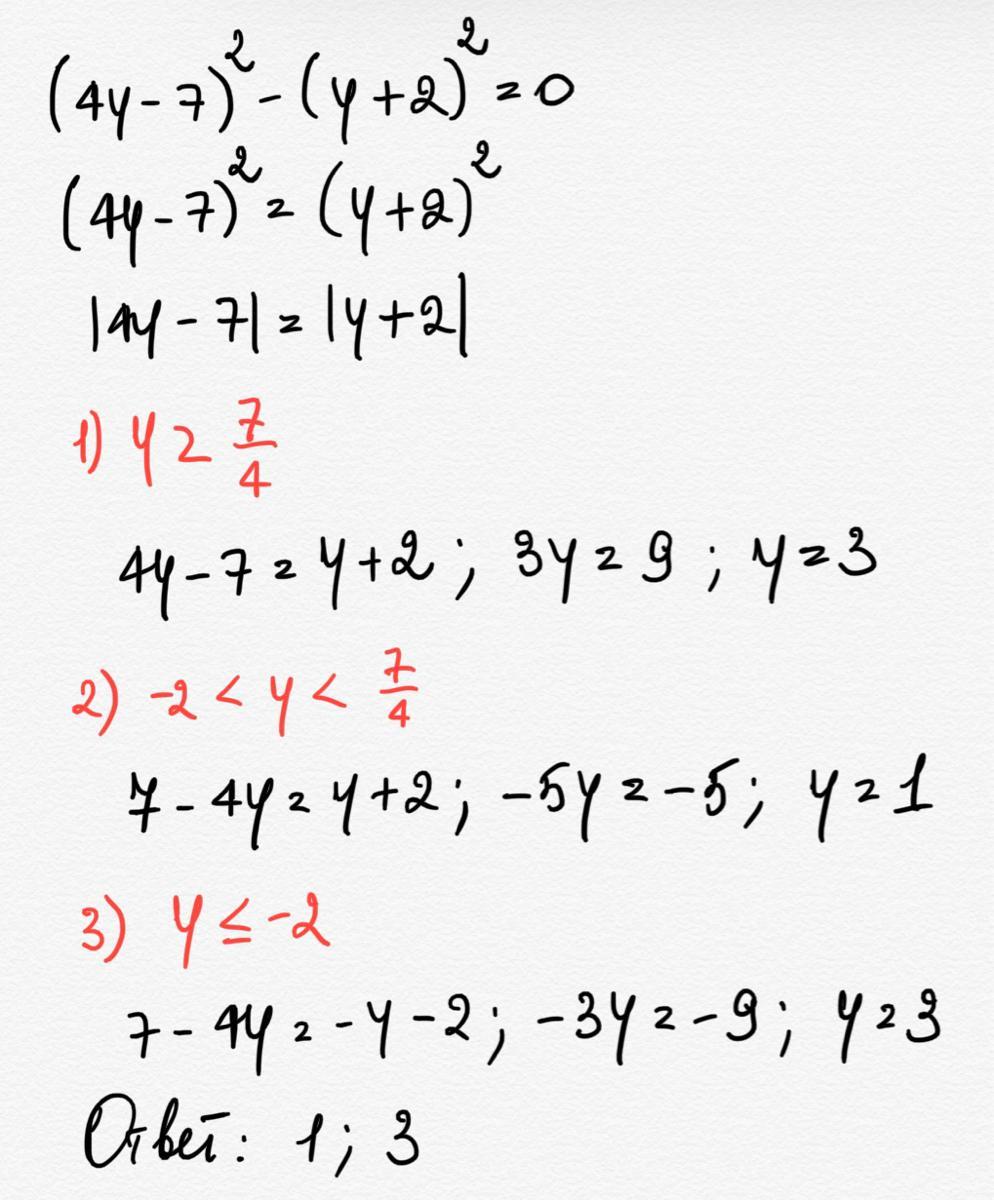 (4y-7)² - (y+2)² = 0
(4y-7)² = (y+2)²
|4y-7| = |y+2|
1) y ≥ 7/4
4y-7 = y+2 ; 3y = 9 ; y = 3
2) -2 < y < 7/4
7-4y = y+2 ; -5y = -5 ; y = 1
3) y ≤ -2
7-4y = -y-2 ; -3y = -9 ; y = 3
Ответ: 1 ; 3